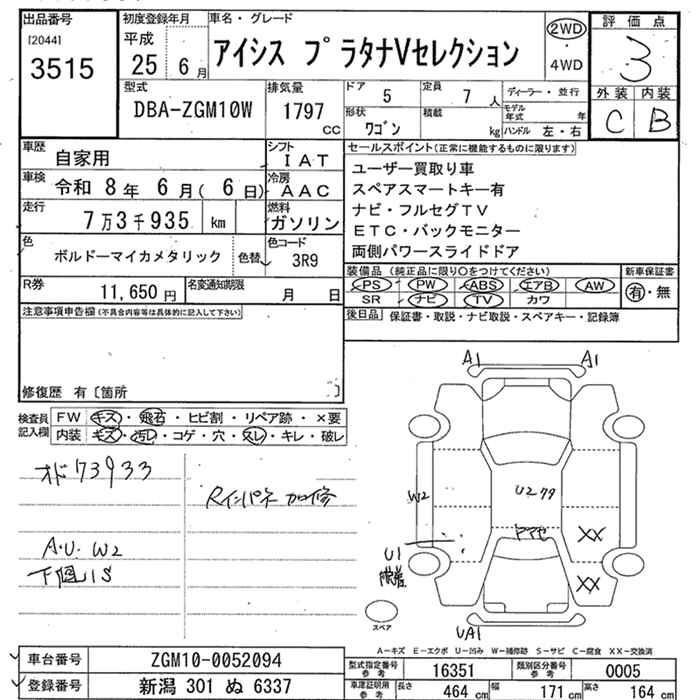 出品番号 初度登録年月 車名・グレード 評価点
[2044] 平成
3515 25 6月 アイシス プラタナVセレクション 2WD・4WD 3
型式 排気量 ドア 定員 ディーラー・並行 外装 内装
DBA-ZGM10W 1797 CC 5 7人 モデル年式 年 C B
形状 積載
ワゴン kg ハンドル 左・右
車歴 自家用 シフト IAT セールスポイント(正常に機能するものに限ります)
車検 令和 8年 6月(6日) 冷房 AAC ユーザー買取り車
スペアスマートキー有
走行 7万3千935 km 燃料 ガソリン ナビ・フルセグTV
ETC・バックモニター
色 ボルドーマイカメタリック 色替 色コード 3R9 両側パワースライドドア
装備品(純正品に限り○をつけてください) 新車保証書
R券 11,650円 名変通知期限 月 日 PS PW ABS エアB AW 有・無
SR ナビ TV カワ
注意事項申告欄(不具合内容等は具体的に記入して下さい) 後日品 保証書・取説・ナビ取説・スペアキー・記録簿
修復歴 有〔箇所 〕
A1 A1
検査員記入欄 FW キズ・飛石・ヒビ割・リペア跡・×要
内装 キズ・汚レ・コゲ・穴・スレ・キレ・破レ
オド 73933
Rインパネ加修
W2 U2
A.U. W2 XX
下回りS U1
XX
スペア UA1
A-キズ E-エクボ U-凹み W-補修跡 S-サビ C-腐食 XX-交換済
車台番号 ZGM10-0052094 型式指定番号参考 16351 類別区分番号参考 0005
登録番号 新潟 301 ぬ 6337 車庫証明用参考 長さ 464 cm 幅 171 cm 高さ 164 cm